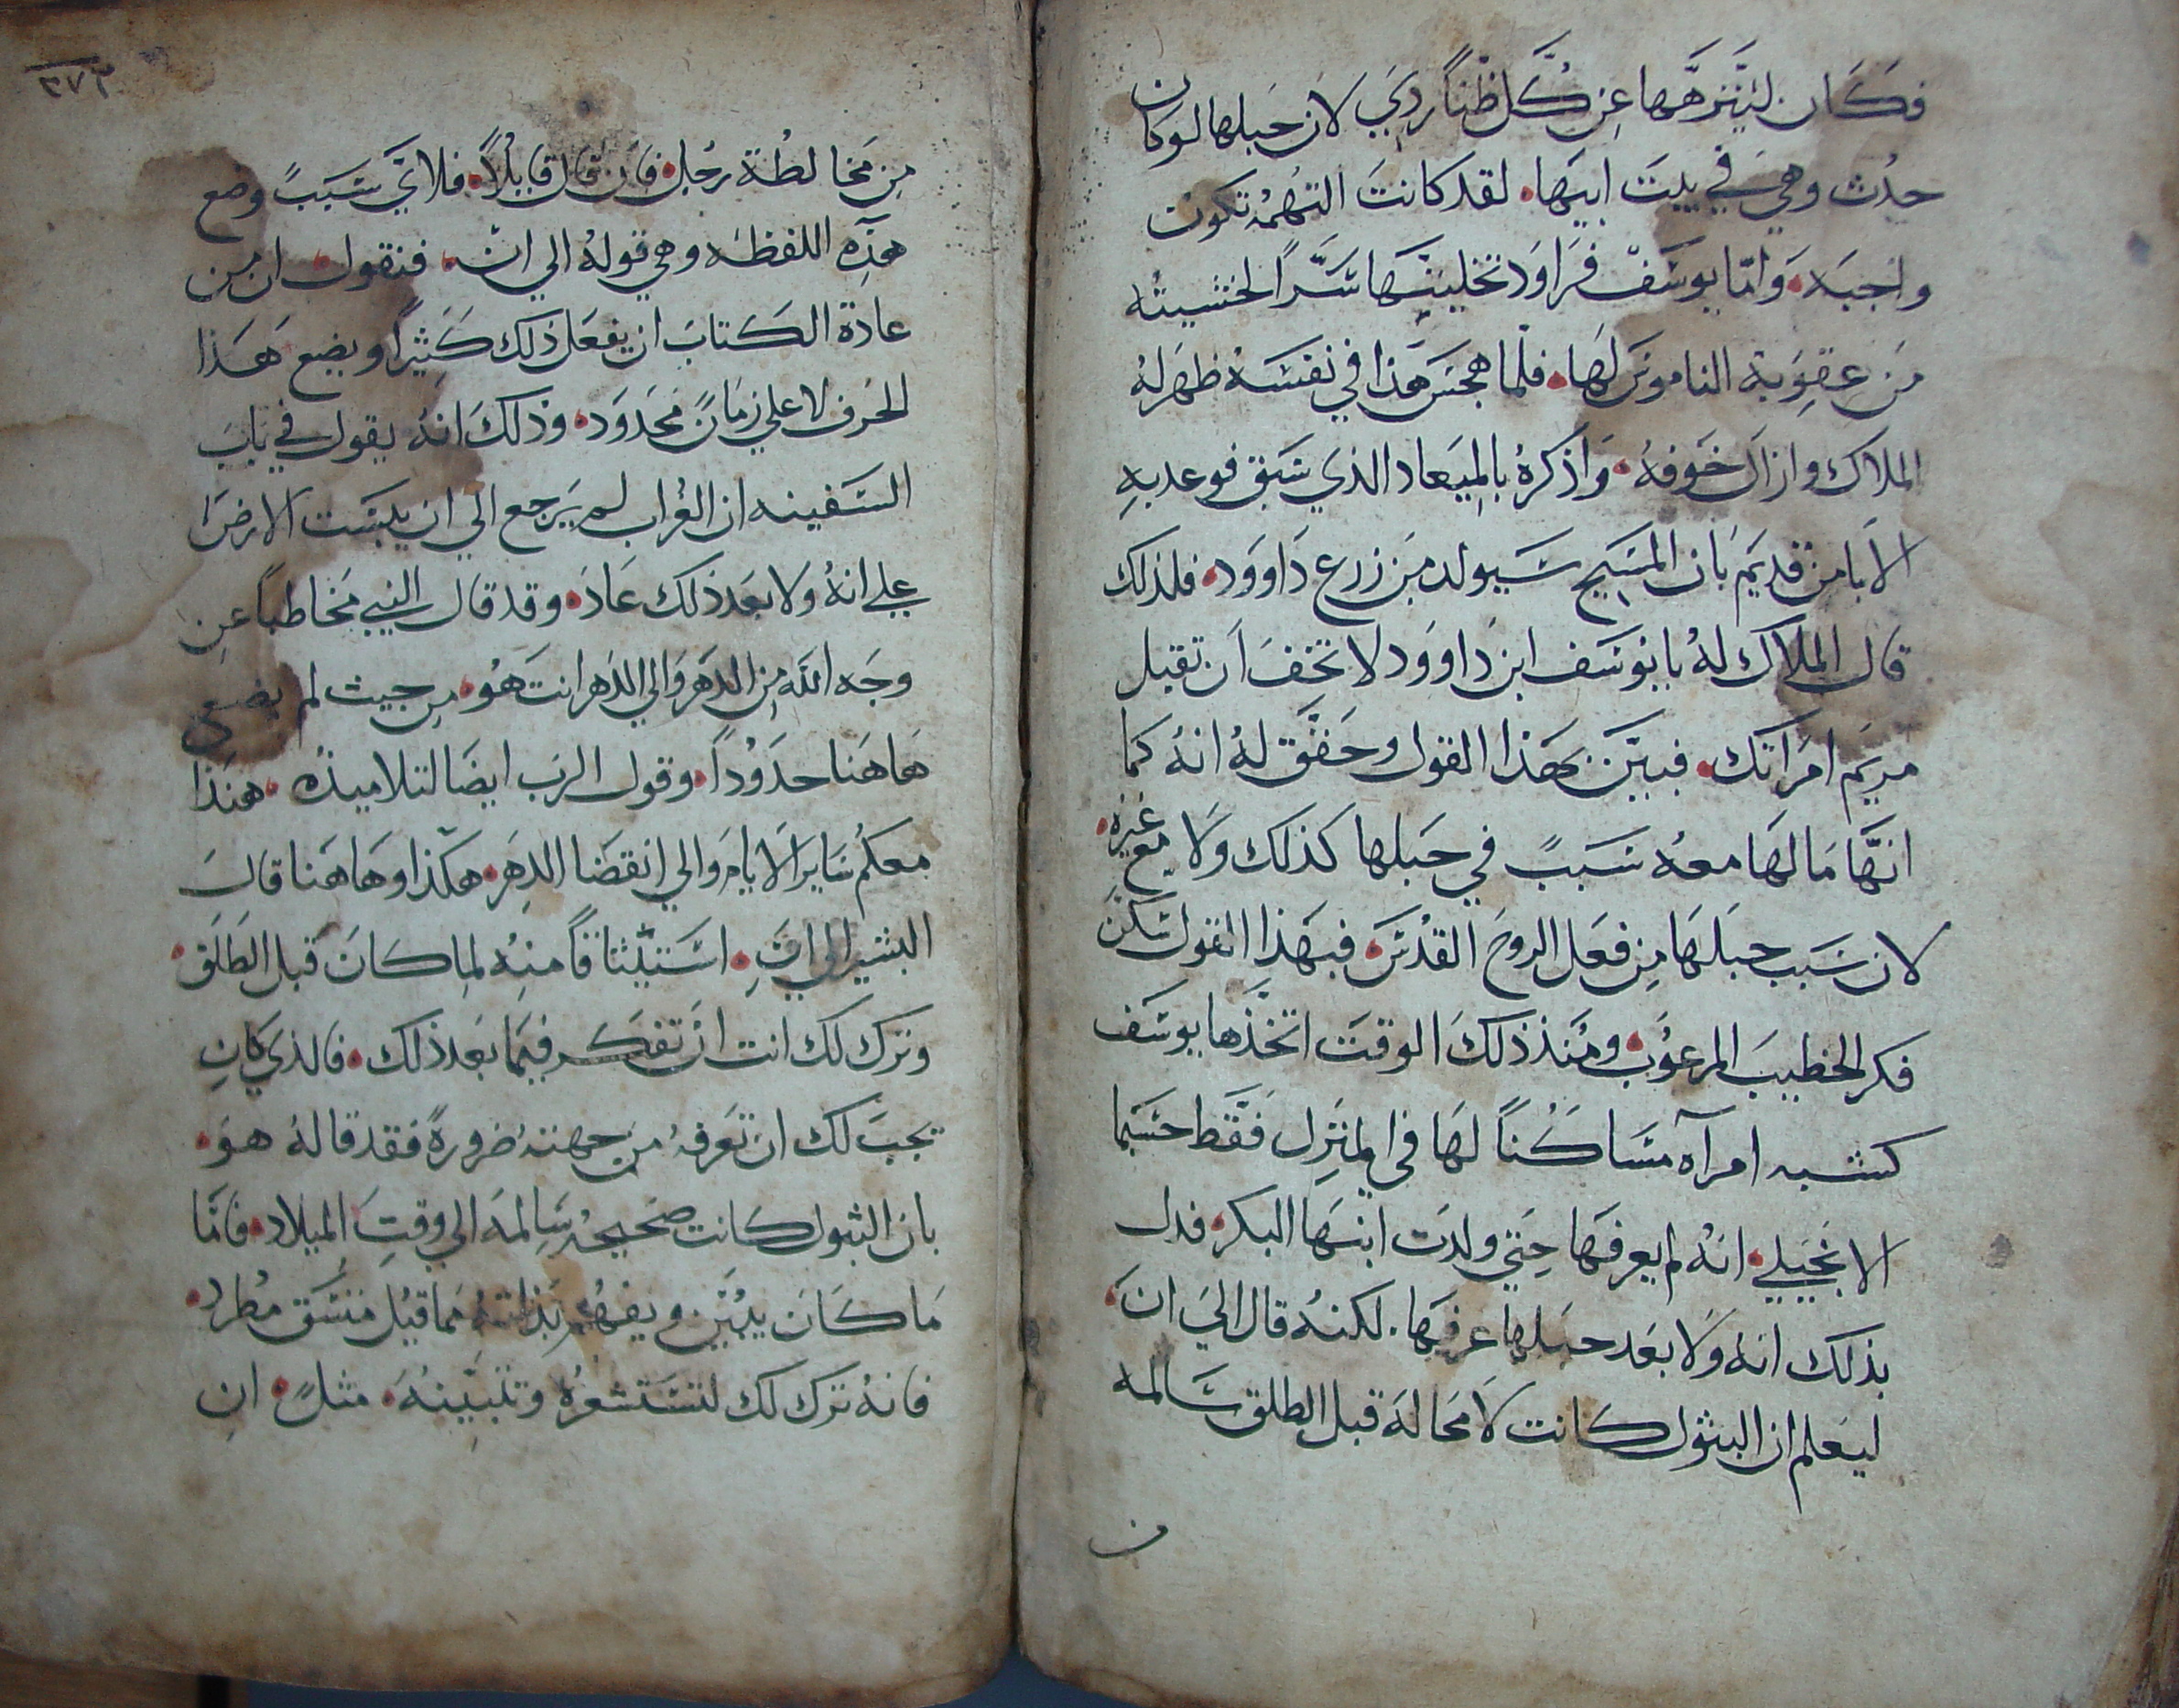 فكان لينزهها عن كل ظناً ردي لان حبلها لو كان
حدث وهي في بيت ابيها. لقد كانت التهمه تكون
واجبه. واما يوسف فراود تخليتها سراً لخشيته
من عقوبة الناموس لها. فلما هجس هذا في نفسه ظهر له
الملاك وازال خوفه. واذكره بالميعاد الذي سبق فوعد به
الابا من قديم بان المسيح سيولد من زرع داوود. فلذلك
قال الملاك له يا يوسف ابن داوود لا تخف ان تقبل
مريم امراتك. فبين بهذا القول وحقق له انه كما
انها ما لها معه سببً في حبلها كذلك ولا مع غيره.
لان سبب حبلها من فعل الروح القدس. فبهذا القول سكن
فكر الخطيب المرعوب. ومنذ ذلك الوقت اتخذها يوسف
كشبه امرآه مساكناً لها في المنزل فقط حسبما
الانجيلي. انه لم يعرفها حتي ولدت ابنها البكر. فدل
بذلك انه ولا بعد حبلها عرفها. لكنه قال الي ان.
ليعلم ان البتول كانت لا محاله قبل الطلق سالمه
من
٢٧٢
من مخالطة رجل. فان قال قايلاً. فلاي سببً وضع
هذه اللفظه وهي قوله الي ان. فنقول. ان من
عادة الكتاب ان يفعل ذلك كثيراً ويضع هذا
الحرف لا علي زمانً محدود. وذلك انه يقول في باب
السفينه ان الغراب لم يرجع الي ان يبست الارض
علي انه ولا بعد ذلك عاد. وقد قال النبي مخاطباً عن
وجه الله من الدهر والي الدهر انت هو. من حيث لم يضع
هاهنا حدوداً. وقول الرب ايضا لتلاميذه. هنذا
معكم ساير الايام والي انقضا الدهر. هكذا وهاهنا قال
البشير الي ان. استيثاقاً منه لما كان قبل الطلق.
وترك لك انت ان تفكر فيما بعد ذلك. فالذي كان
يجب لك ان تعرفه من جهته ضرورةً فقد قاله هو.
بان البتول كانت صحيحه سالمه الي وقت الميلاد. فاما
ما كان يبين ويفهم بذاته مما قيل منسق مطرد.
فانه ترك لك لتستشعره وتتبينه. مثلً. ان